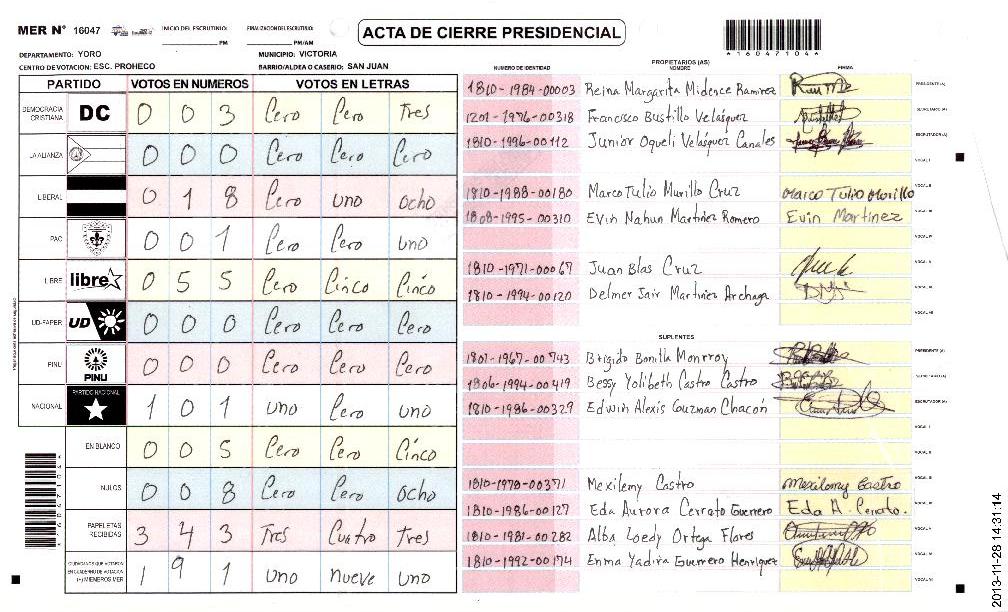 MER Nº 16047 INICIO DEL ESCRUTINIO: ________ PM FINALIZACION DEL ESCRUTINIO: ________ PM/AM
ACTA DE CIERRE PRESIDENCIAL
*16047104*
DEPARTAMENTO: YORO MUNICIPIO: VICTORIA
CENTRO DE VOTACION: ESC. PROHECO BARRIO/ALDEA O CASERIO: SAN JUAN
PARTIDO VOTOS EN NUMEROS VOTOS EN LETRAS
DEMOCRACIA CRISTIANA DC 0 0 3 Cero Cero Tres
LA ALIANZA 0 0 0 Cero Cero Cero
LIBERAL 0 1 8 Cero uno ocho
PAC 0 0 1 Cero Cero uno
LIBRE libre 0 5 5 Cero Cinco Cinco
UD-FAPER UD 0 0 0 Cero Cero Cero
PINU PINU 0 0 0 Cero Cero Cero
NACIONAL PARTIDO NACIONAL 1 0 1 uno Cero uno
EN BLANCO 0 0 5 Cero Cero Cinco
NULOS 0 0 8 Cero Cero ocho
PAPELETAS RECIBIDAS 3 4 3 Tres Cuatro Tres
CIUDADANOS QUE VOTARON EN CUADERNO DE VOTACION (+) MIEMBROS MER 1 9 1 uno nueve uno
PROPIETARIOS (AS)
NUMERO DE IDENTIDAD NOMBRE FIRMA
1810-1984-00003 Reina Margarita Midence Ramirez PRESIDENTE (A)
1201-1976-00318 Francisco Bustillo Velásquez SECRETARIO (A)
1810-1996-00112 Junior Oqueli Velásquez Canales ESCRUTADOR (A)
VOCAL I
1810-1988-00180 Marco Tulio Murillo Cruz Marco Tulio Murillo VOCAL II
1808-1995-00310 Evin Nahun Martinez Romero Evin Martinez VOCAL III
VOCAL IV
1810-1971-00067 Juan Blas Cruz VOCAL V
1810-1994-00120 Delmer Jair Martinez Archaga VOCAL VI
VOCAL VII
SUPLENTES
1801-1967-00743 Brigido Bonilla Monrroy PRESIDENTE (A)
1806-1994-00419 Bessy Yolibeth Castro Castro SECRETARIO (A)
1810-1986-00329 Edwin Alexis Guzman Chacón ESCRUTADOR (A)
VOCAL I
VOCAL II
1810-1970-00371 Mexilemy Castro Mexilemy Castro VOCAL III
1810-1986-00127 Eda Aurora Cerrato Guerrero Eda A. Cerrato. VOCAL IV
1810-1981-00282 Alba Loedy Ortega Flores VOCAL V
1810-1992-00174 Enma Yadira Guerrero Henriquez VOCAL VI
VOCAL VII
2013-11-28 14:31:14